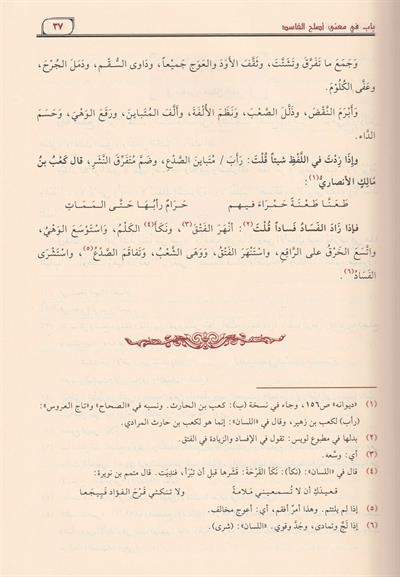 باب في معنى: أصلح الفاسد
٣٧
وَجَمَعَ ما تَفَرَّقَ وَتَشَتَّتَ، وَثَقَّفَ الأَوَدَ والعَوَج جَميْعاً، وَدَاوى السُّقْم، وَدَمَلَ الجُرْحَ،
وعَفَّى الكُلُوْمَ.
وَأَبْرَمَ النَّقْضَ، وَذَلَّلَ الصَّعْبَ، وَنَظَمَ الأُلْفَةَ، وألَّف المُتَباينَ، وَرَقَعَ الوَهْيَ، وَحَسَمَ
الدَّاء.
وإِذَا زِدْتَ في اللَّفْظِ شيئاً قُلْتَ: رَأَبَ / مُتَبَاينَ الصَّدْعِ، وضَمَّ مُتَفَرِّقَ النَّشَرِ، قال كَعْبُ بنُ
مَالِكٍ الأنصاريُّ(١):
طَعَـنَّـا طَعْـنَـةً حَـمْـرَاءَ فـيـهِـم حَـرَامٌ رأبُـهَـا حَتَّـى الـمَـمَـاتِ
فإذا زَادَ الفَسَادُ فَساداً قُلْتَ(٢): أنْهَرَ الفَتْقَ(٣)، ونَكَأَ(٤) الكَلْمَ، واسْتَوْسَعَ الوَهْيُ،
واتَّسَعَ الخَرْقُ على الرَّاقِعِ، واسْتَنْهَرَ الفَتْقُ، وَوَهَى الشَّعْبُ، وَتَفاقَمَ الصَّدْعُ(٥)، واسْتَشْرَى
الفَسَادُ(٦).
(١) «ديوانه» ص١٥٦، وجاء في نسخة (ب): كعب بن الحارث. ونسبه في «الصحاح» و«تاج العروس»:
(رأب) لكعب بن زهير، وقال في «اللسان»: إنما هو لكعب بن حارث المرادي.
(٢) بدلها في مطبوع لويس: تقول في الإفساد والزيادة في الفتق.
(٣) أي: وسَّعه.
(٤) قال في «اللسان»: (نكأ): نَكَأَ القَرْحَةَ: قَشَرها قبل أن تبْرَأ، فنَدِيَتْ. قال متمم بن نويرة:
قعيدَكِ أن لا تُـسـمعيني مَـلامـةً ولا تنكئي قَـرْحَ الـفـؤاد فَـيِيـجعَا
(٥) إذا لم يلتئم. وهذا أمرٌ أفقم، أي: أعوج مخالف.
(٦) إذا لَجَّ وتمادى، وجَدَّ وقوي. «اللسان»: (شرى).